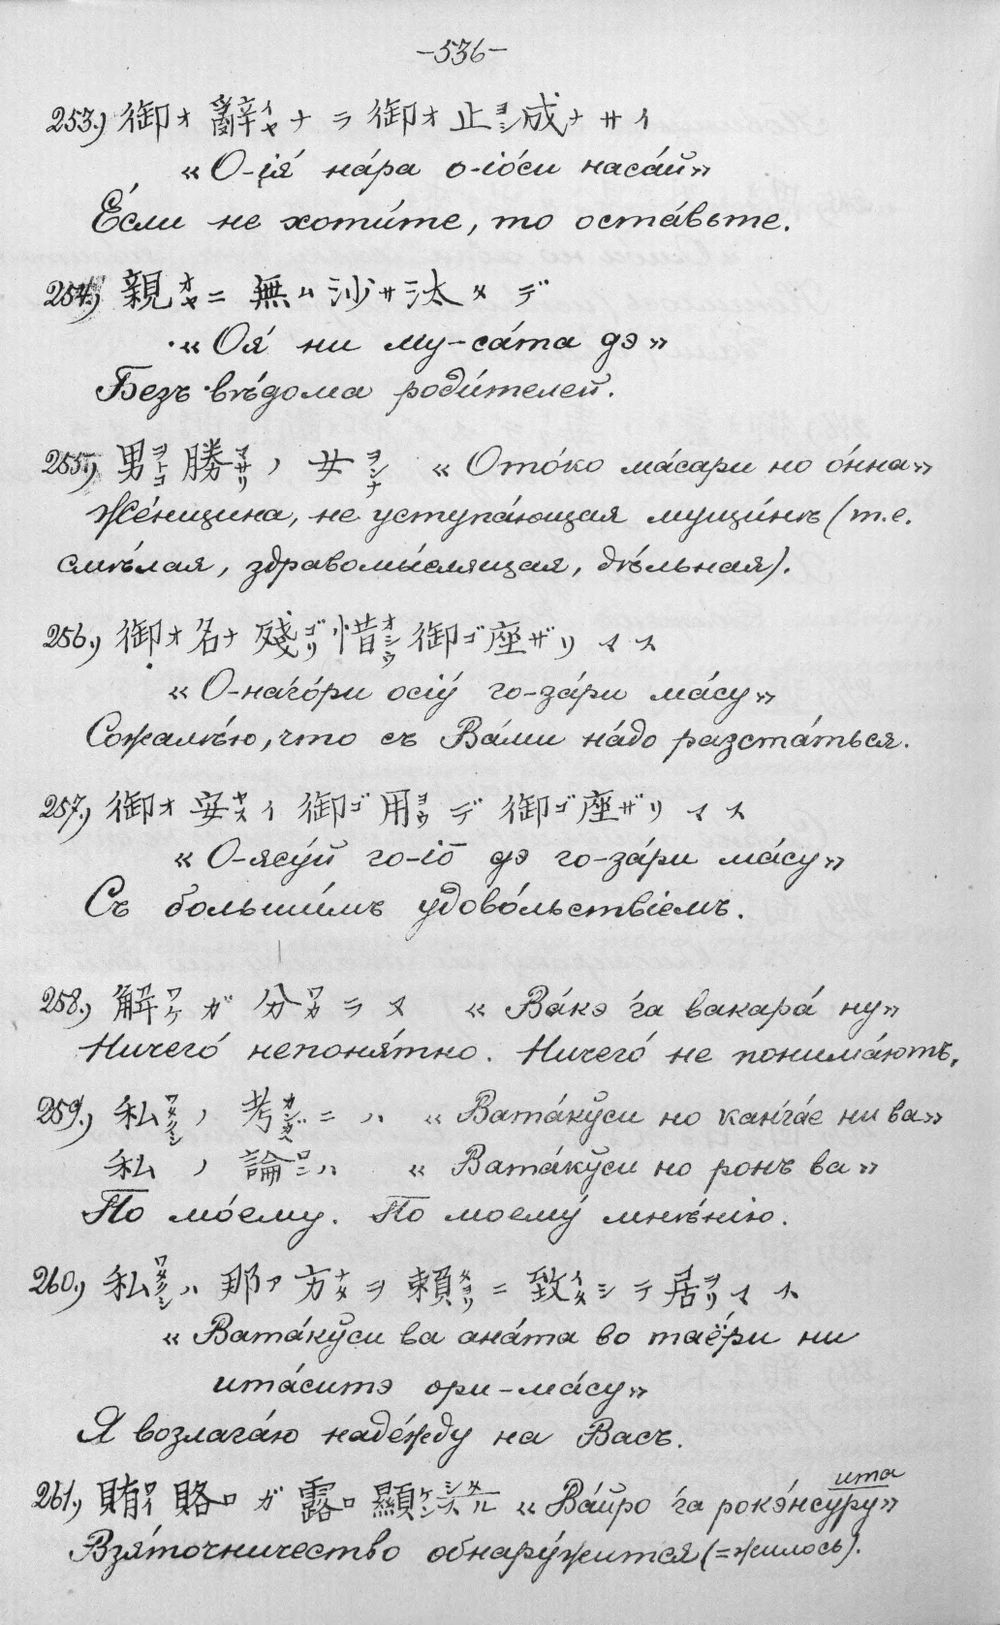 –536–
253.) 御オ辭イヤナラ御オ止ヨシ成ナサイ
«О-ія́ на́ра о-іо́си наса́й»
Е́сли не хоти́те, то оста́вьте.
254.) 親オヤニ無ム沙サ汰タデ
«Оя́ ни му-са́та дэ»
Безъ вѣ́дома роди́телей.
255.) 男ヲトコ勝マサリノ女ヲンナ «Ото́ко ма́сари но о́нна»
Же́нщина, не уступа́ющая мущи́нѣ (т.е.
смѣ́лая, здравомы́слящая, дѣ́льная).
256.) 御オ名ナ殘ゴリ惜オシウ御ゴ座ザリマス
«О-наго́ри осіу́ го-за́ри ма́су»
Сожалѣ́ю, что съ Ва́ми на́до разста́ться.
257.) 御オ安ヤスイ御ゴ用ヨウデ御ゴ座ザリマス
«О-ясу́й го-іо̄ дэ го-за́ри ма́су»
Съ больши́мъ удово́льствіемъ.
258.) 解ワケガ分ワカラヌ «Ва́кэ ́га вакара́ ну»
Ничего́ непоня́тно. Ничего́ не понима́ютъ.
259.) 私ワタクシノ考カンガヘニハ «Вата́кўси но канга́е ни ва»
私ノ論ロンハ «Вата́кўси но ронъ ва»
По мо́ему. По моему́ мнѣ́нію.
260.) 私ワタクシハ那ア方ナタヲ頼タヨリニ致イタシテ居ヲリマス
«Вата́кўси ва ана́та во таё́ри ни
ита́ситэ ори-ма́су»
Я возлага́ю наде́жду на Васъ.
ита
261.) 賄ワイ賂ロガ露ロ顯ケンスル «Ва́йро ́га рокэ́нсуру»
Взя́точничество обнару́жится (=жилось).